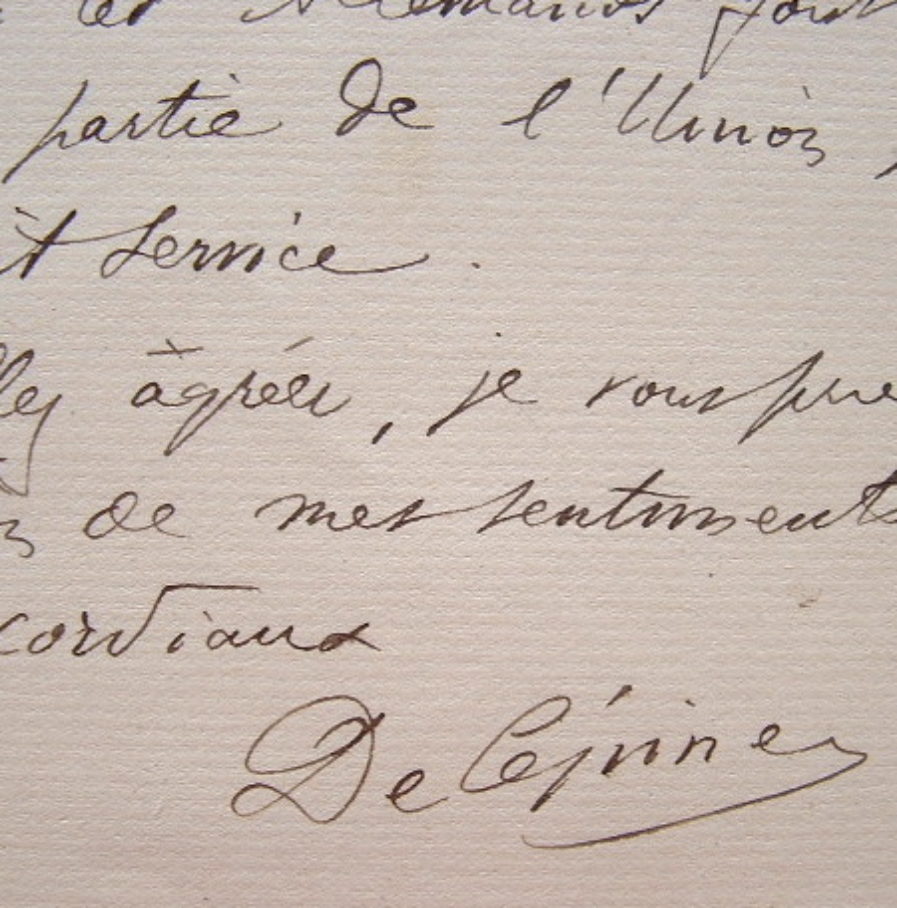 les Allemands font
partie de l'Union,
it service.
agréer, je vous prie
de mes sentiments
cordiaux
Delépine